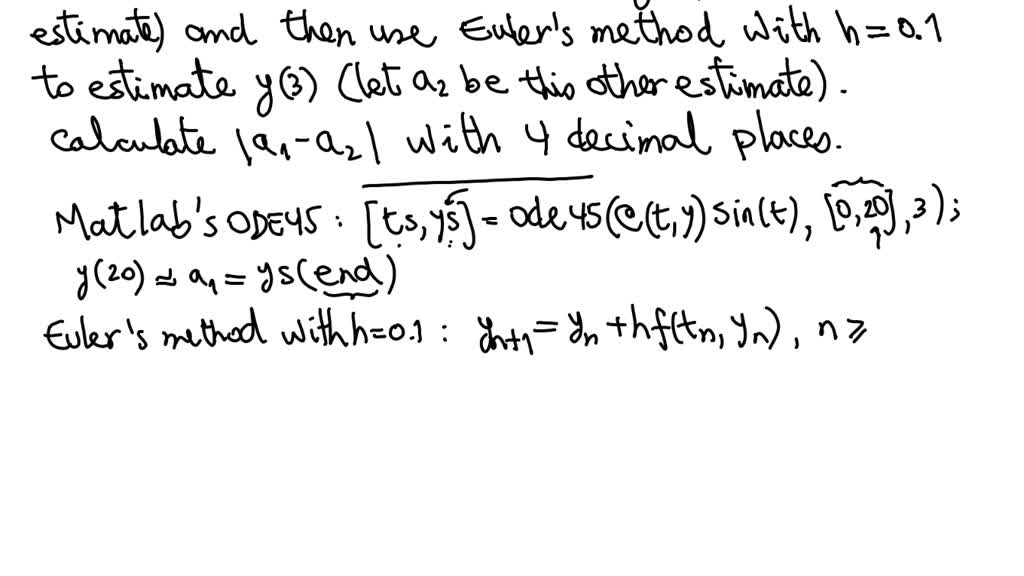 estimate) and then use Euler's method with h=0.1
to estimate y(3) (let a₂ be this other estimate).
Calculate |a₁-a₂| with 4 decimal places.
Matlab's ODE45: [ts,ys]=ode45(@(t,y)sin(t),[0,20],3);
y(20)≈a₁=ys(end)
Euler's method with h=0.1: yₙ₊₁=yₙ+hf(tₙ,yₙ), n≥